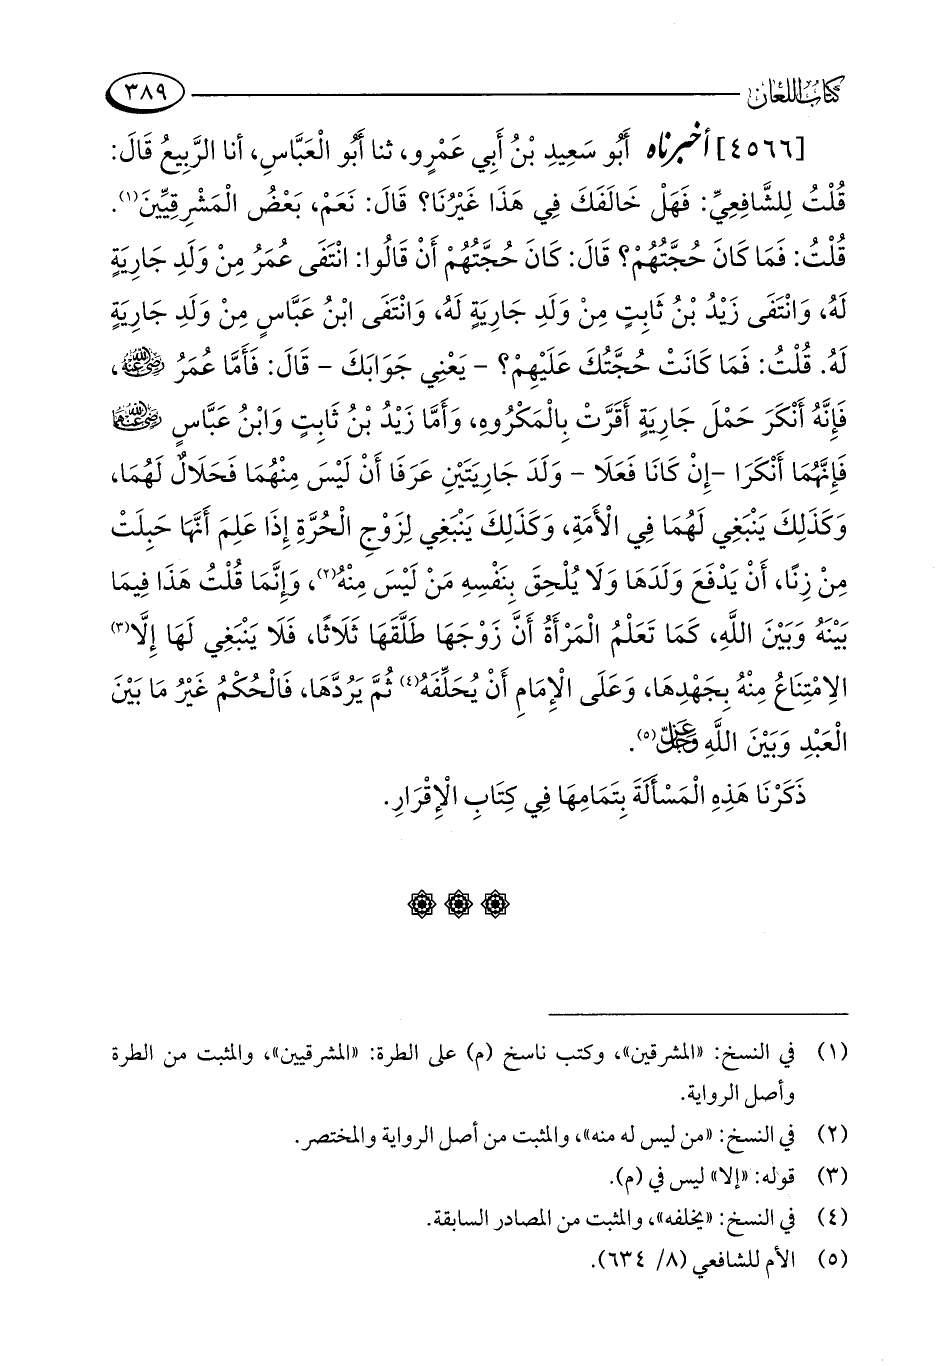 كتاب اللعان ٣٨٩
[٤٥٦٦] أخبرناه أَبُو سَعِيدِ بْنُ أَبِي عَمْرٍو، ثنا أَبُو الْعَبَّاسِ، أنا الرَّبِيعُ قَالَ:
قُلْتُ لِلشَّافِعِيِّ: فَهَلْ خَالَفَكَ فِي هَذَا غَيْرُنَا؟ قَالَ: نَعَمْ، بَعْضُ الْمَشْرِقِيِّينَ(١).
قُلْتُ: فَمَا كَانَ حُجَّتُهُمْ؟ قَالَ: كَانَ حُجَّتُهُمْ أَنْ قَالُوا: انْتَفَى عُمَرُ مِنْ وَلَدِ جَارِيَةٍ
لَهُ، وَانْتَفَى زَيْدُ بْنُ ثَابِتٍ مِنْ وَلَدِ جَارِيَةٍ لَهُ، وَانْتَفَى ابْنُ عَبَّاسٍ مِنْ وَلَدِ جَارِيَةٍ
لَهُ. قُلْتُ: فَمَا كَانَتْ حُجَّتُكَ عَلَيْهِمْ؟ - يَعْنِي جَوَابَكَ - قَالَ: فَأَمَّا عُمَرُ رضي الله عنه،
فَإِنَّهُ أَنْكَرَ حَمْلَ جَارِيَةٍ أَقَرَّتْ بِالْمَكْرُوهِ، وَأَمَّا زَيْدُ بْنُ ثَابِتٍ وَابْنُ عَبَّاسٍ رضي الله عنهما
فَإِنَّهُمَا أَنْكَرَا -إِنْ كَانَا فَعَلَا - وَلَدَ جَارِيَتَيْنِ عَرَفَا أَنْ لَيْسَ مِنْهُمَا فَحَلَالٌ لَهُمَا،
وَكَذَلِكَ يَنْبَغِي لَهُمَا فِي الْأَمَةِ، وَكَذَلِكَ يَنْبَغِي لِزَوْجِ الْحُرَّةِ إِذَا عَلِمَ أَنَّهَا حَبِلَتْ
مِنْ زِنًا، أَنْ يَدْفَعَ وَلَدَهَا وَلَا يُلْحِقَ بِنَفْسِهِ مَنْ لَيْسَ مِنْهُ(٢)، وَإِنَّمَا قُلْتُ هَذَا فِيمَا
بَيْنَهُ وَبَيْنَ اللَّهِ، كَمَا تَعْلَمُ الْمَرْأَةُ أَنَّ زَوْجَهَا طَلَّقَهَا ثَلَاثًا، فَلَا يَنْبَغِي لَهَا إِلَّا(٣)
الِامْتِنَاعُ مِنْهُ بِجَهْدِهَا، وَعَلَى الْإِمَامِ أَنْ يُحَلِّفَهُ(٤) ثُمَّ يَرُدَّهَا، فَالْحُكْمُ غَيْرُ مَا بَيْنَ
الْعَبْدِ وَبَيْنَ اللَّهِ عز وجل(٥).
ذَكَرْنَا هَذِهِ الْمَسْأَلَةَ بِتَمَامِهَا فِي كِتَابِ الْإِقْرَارِ.
(١) في النسخ: «المشرقين»، وكتب ناسخ (م) على الطرة: «المشرقيين»، والمثبت من الطرة
وأصل الرواية.
(٢) في النسخ: «من ليس له منه»، والمثبت من أصل الرواية والمختصر.
(٣) قوله: «إلا» ليس في (م).
(٤) في النسخ: «يخلفه»، والمثبت من المصادر السابقة.
(٥) الأم للشافعي (٨/ ٦٣٤).